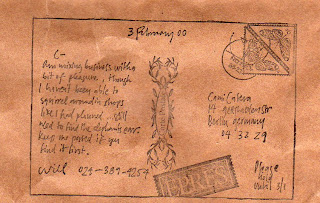 3 February 00
C-
Am mixing business with a
bit of pleasure, though
I haven't been able to
squirrel around in shops
like I had planned... Still
need to find the elephants ears
Keep me posted if you
find it first.
Will 025-389-9257
Berlin, Germany
04 32 29
Please
hold
until 3/1